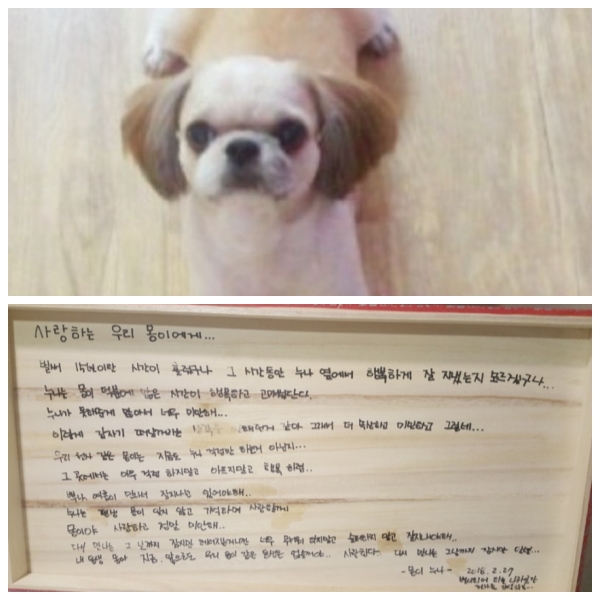 사랑하는 우리 몽이에게...
벌써 15년이란 시간이 흘렀구나 그 시간동안 누나 옆에서 행복하게 잘 지냈는지 모르겠구나...
누나는 몽이 덕분에 많은 시간이 행복하고 고마웠단다.
누나가 못해준게 많아서 너무 미안해...
이렇게 갑자기 떠날꺼라는 그래서 더 속상하고 미안하고 그렇네...
우리 같은 몽이는 지금도 누나 걱정만 하는건 아닌지..
그 곳에서는 아무 걱정 하지말고 아프지말고 행복 하렴..
잘지내고 있어야해..
누나는 평생 몽이 잊지 않고 기억하며 사랑할께
몽이야 사랑하고 정말 미안해..
다시 만나는 그 날까지 너무 말고 슬퍼하지 말고 잘지내야해..
내 동생 몽아 지금, 앞으로도 우리 몽이 같은 동생은 없을꺼야.. 사랑한다 다시 만나는 그날까지 잠시만 안녕...
-몽이 누나- 2016. 2. 27